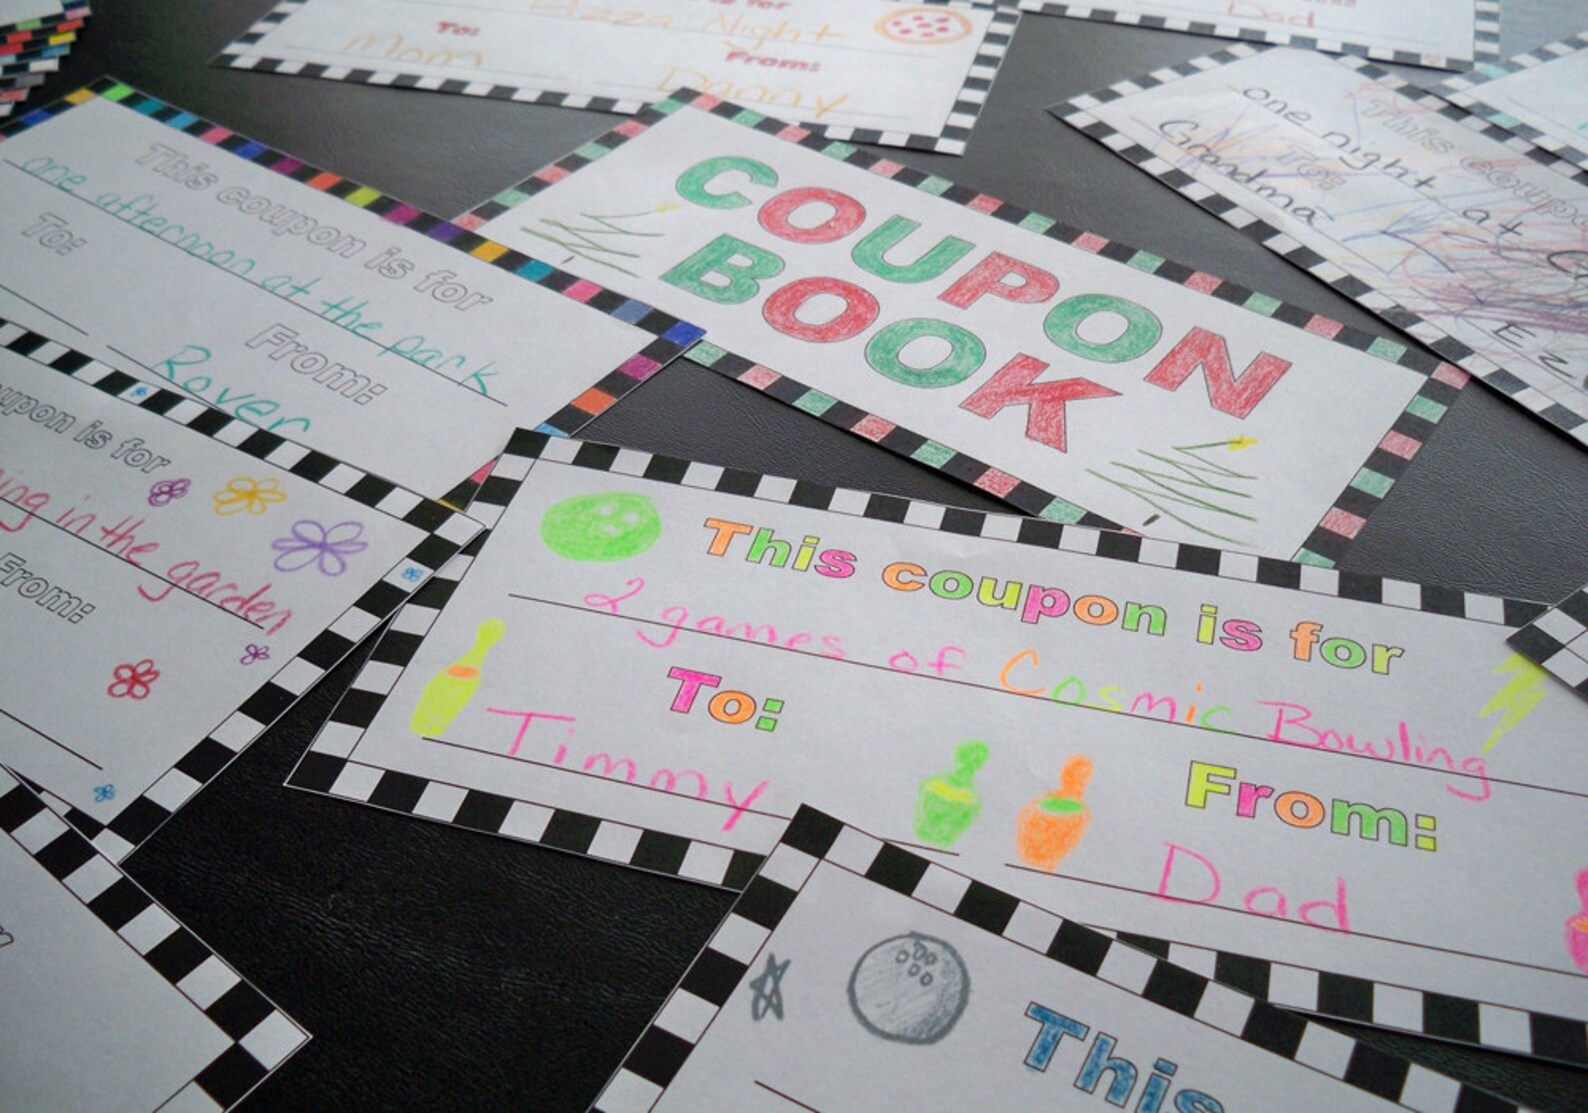 is for
Pizza Night
To:
From:
Mom
Danny
Dad
This coupon
one night at
To:
Grandma
Ez
COUPON
BOOK
This coupon is for
one afternoon at the park
To:
From:
Rover
coupon is for
in the garden
From:
This coupon is for
2 games of Cosmic Bowling
To:
From:
Timmy
Dad
This